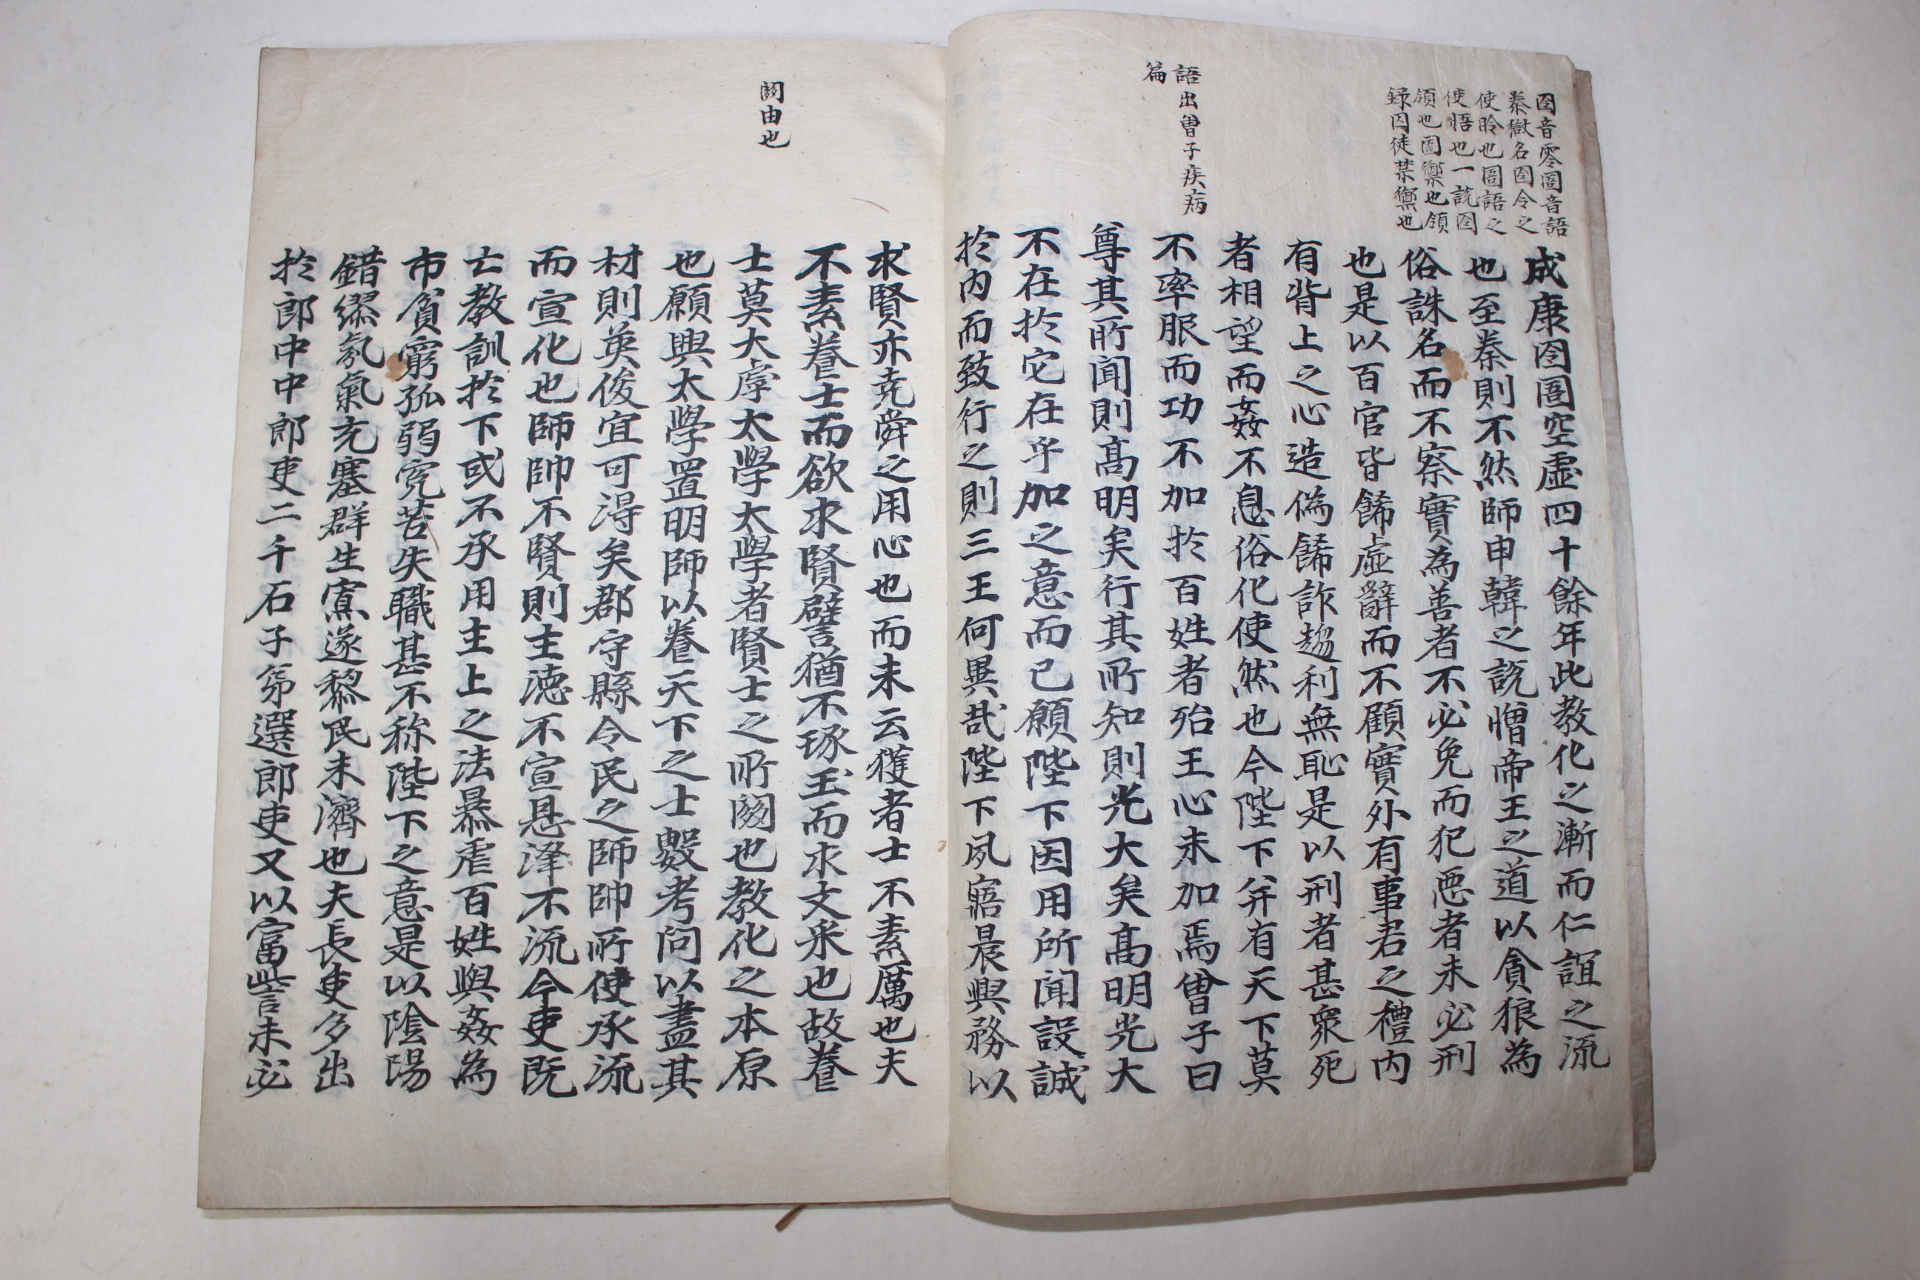 囹音零圄音語
秦獄名囹令之
使聆也圄語之
使悟也一說囹
領也圄禦也領
録囚徒禁禦也
語出曾子疾病
篇
成康囹圄空虛四十餘年此教化之漸而仁誼之流
也至秦則不然師申韓之說憎帝王之道以貪狼為
俗誅名而不察實為善者不必免而犯惡者未必刑
也是以百官皆餙虛辭而不顧實外有事君之禮內
有背上之心造偽餙詐趍利無恥是以刑者甚衆死
者相望而姦不息俗化使然也今陛下并有天下莫
不率服而功不加扵百姓者殆王心未加焉曾子曰
尊其所聞則髙明矣行其所知則光大矣髙明光大
不在扵它在乎加之意而已願陛下因用所聞設誠
扵內而致行之則三王何異哉陛下夙寤晨興務以
闗由也
求賢亦堯舜之用心也而未云獲者士不素厲也夫
不素養士而欲求賢譬猶不琢玉而求文采也故養
士莫大虖太學太學者賢士之所闗也教化之本原
也願興太學置明師以養天下之士數考問以盡其
材則英俊宜可得矣郡守縣令民之師帥所使承流
而宣化也師帥不賢則主德不宣恩澤不流今吏既
亡教訓扵下或不承用主上之法暴虐百姓與姦為
市貧窮孤弱寃苦失職甚不称陛下之意是以隂陽
錯繆氛氣充塞群生寡遂黎民未濟也夫長吏多出
扵郎中中郎吏二千石子苐選郎吏又以富訾未必